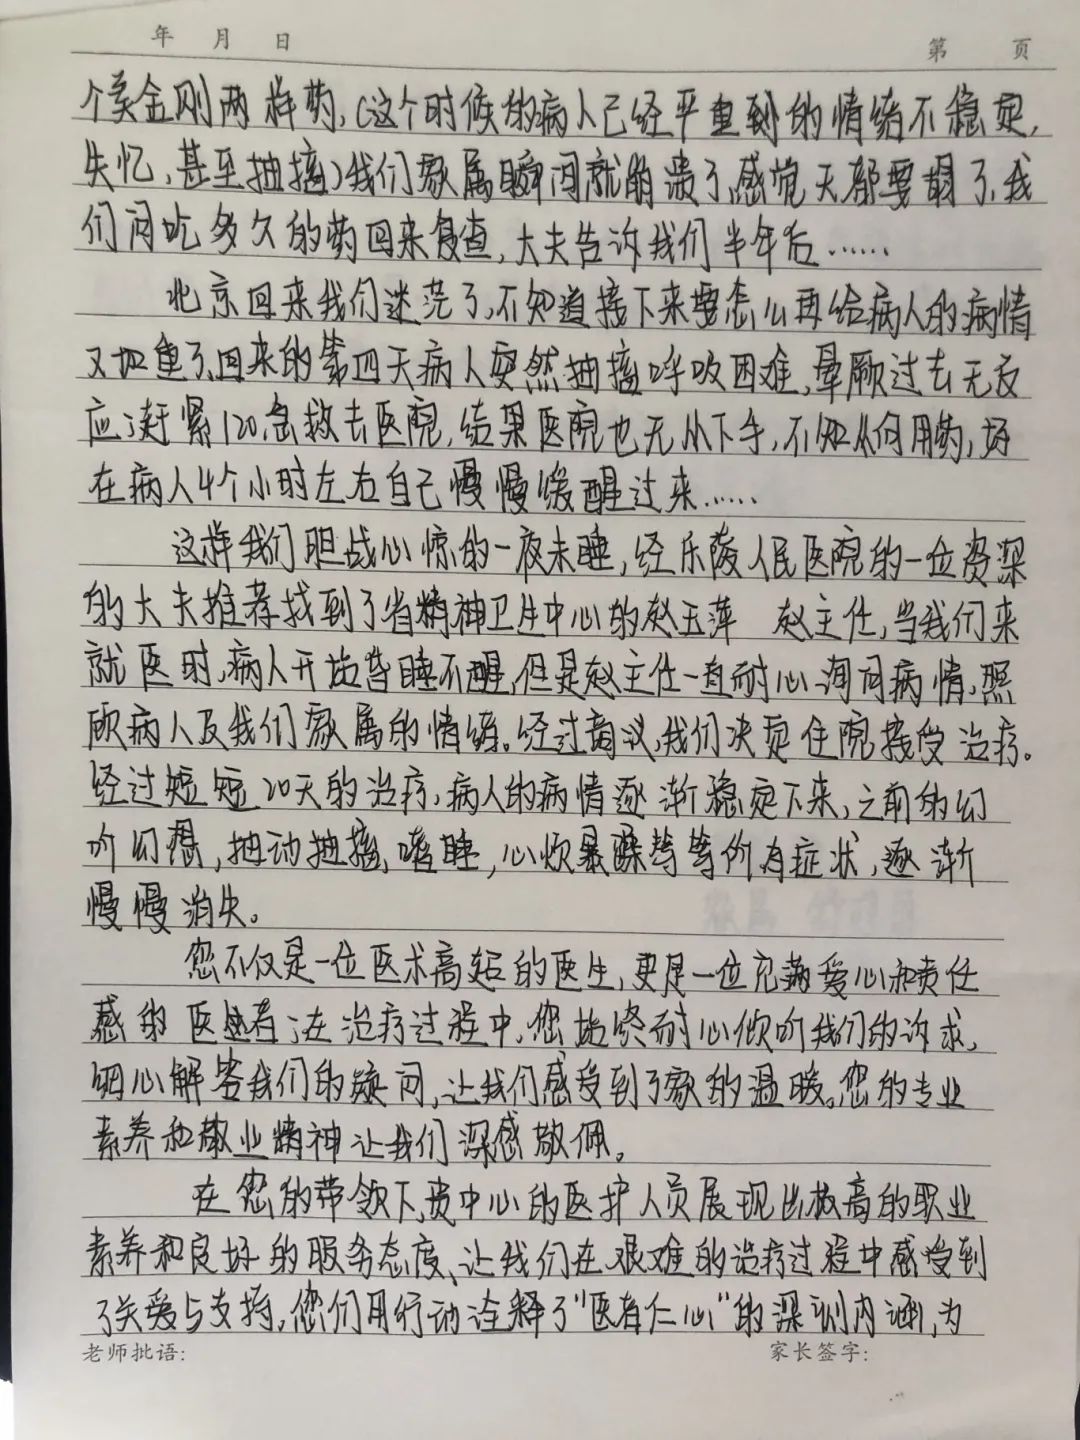 年 月 日
第 页
个美金刚两样药,(这个时候的病人已经严重到的情绪不稳定,
失忆,甚至抽搐)我们家属瞬间就崩溃了,感觉天都要塌了,我
们问吃多久的药回来复查,大夫告诉我们半年后……
北京回来我们迷茫了,不知道接下来要怎么再给病人的病情
又加重了,回来的第四天病人突然抽搐呼吸困难,晕厥过去无反
应;赶紧120急救去医院,结果医院也无从下手,不知从何用药,好
在病人4个小时左右自己慢慢缓醒过来……
这样我们胆战心惊的一夜未睡,经乐陵人民医院的一位资深
的大夫推荐找到了省精神卫生中心的赵玉萍 赵主任,当我们来
就医时,病人开始昏睡不醒,但是赵主任一直耐心询问病情,照
顾病人及我们家属的情绪。经过商议,我们决定住院接受治疗。
经过短短20天的治疗,病人的病情逐渐稳定下来,之前的幻
听幻想,抽动抽搐,嗜睡,心烦暴躁等等所有症状,逐渐
慢慢消失。
您不仅是一位医术高超的医生,更是一位充满爱心和责任
感的医者;在治疗过程中,您始终耐心倾听我们的诉求,
细心解答我们的疑问,让我们感受到了家的温暖。您的专业
素养和敬业精神让我们深感敬佩。
在您的带领下,贵中心的医护人员展现出极高的职业
素养和良好的服务态度、让我们在艰难的治疗过程中感受到
了关爱与支持。您们用行动诠释了"医者仁心"的深刻内涵,为
老师批语:
家长签字: